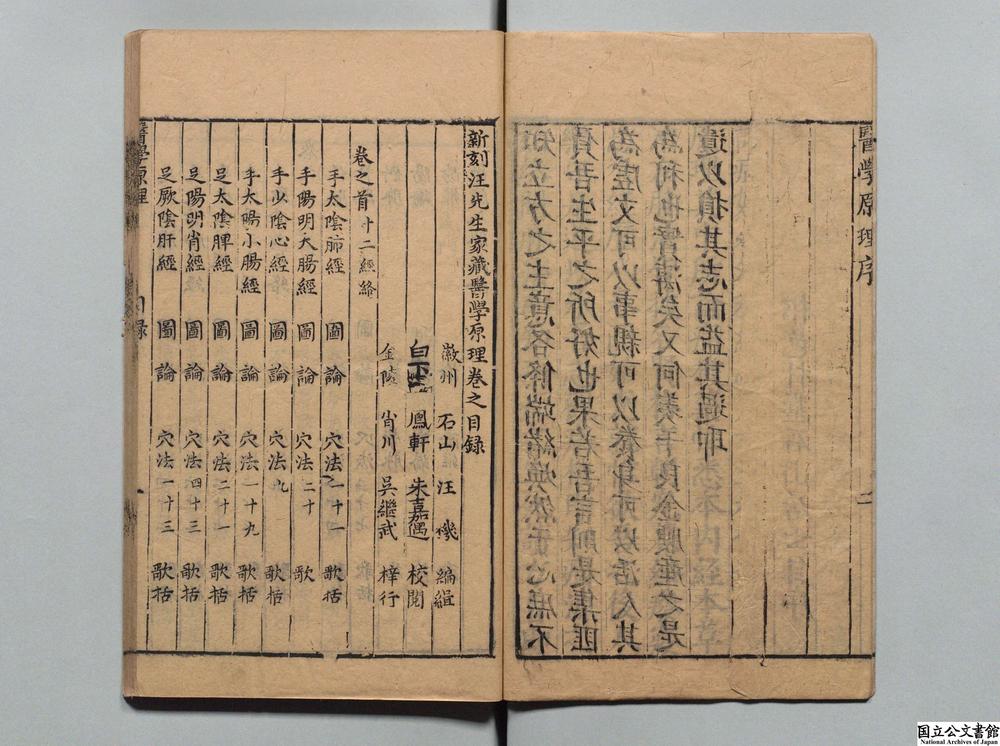 醫學原理序
二
知立方之主意各條端緒煥然于心庶不
負吾生平之所好也果若吾言則是集匪
為虛文可以事親可以養身可以活人其
為利也實溥矣又何羡于良金腴產之是
遺以損其志而益其過耶
新刻汪先生家藏醫學原理卷之目錄
徽州 石山 汪 機 編緝
白下 鳳軒 朱嘉遇 校閱
金陵 肖川 吳繼武 梓行
卷之首 十二經絡
手太陰肺經 圖 論 穴法一十一 歌括
手陽明大腸經 圖 論 穴法二十 歌
手少陰心經 圖 論 穴法九 歌括
手太陽小腸經 圖 論 穴法一十九 歌括
足太陰脾經 圖 論 穴法二十一 歌括
足陽明胃經 圖 論 穴法四十三 歌括
足厥陰肝經 圖 論 穴法一十三 歌括
醫學原理 目錄 一
国立公文書館
National Archives of Japan